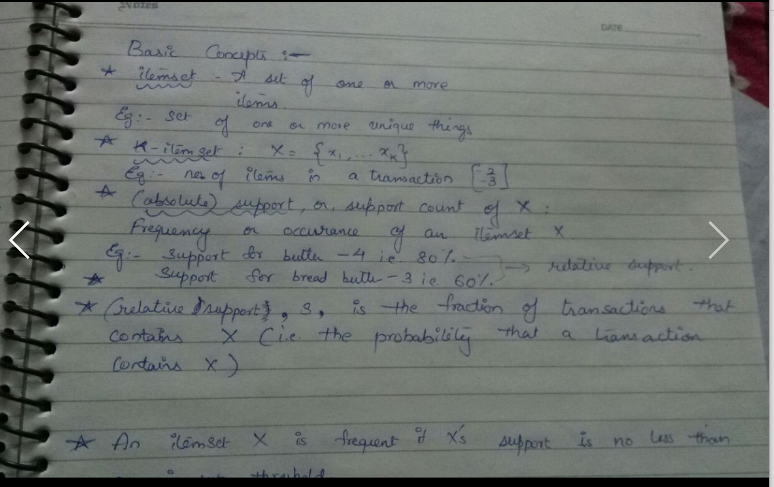 NOTES
DATE
Basic Concepts :-
* itemset - A set of one or more
items.
Eg:- set of one or more unique things
* K-itemset : X = {x1, ... xk}
Eg:- no. of items in a transaction [2 3]
* (absolute) support, or, support count of X :
Frequency or occurance of an itemset X
Eg:- Support for butter - 4 i.e. 80%.
* Support for bread butter - 3 i.e. 60%. → relative support.
* (relative support), s, is the fraction of transactions that
contains X (i.e. the probability that a transaction
contains X)
* An itemset X is frequent if X's support is no less than
threshold